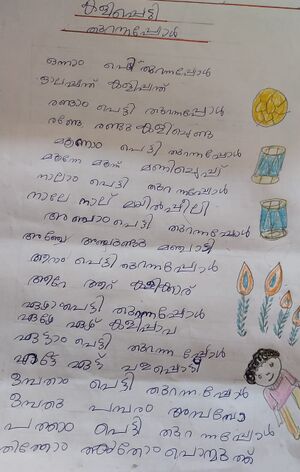 കളിപ്പെട്ടി
തുറന്നപ്പോൾ
ഒന്നാം പെട്ടി തുറന്നപ്പോൾ
ഓലപ്പന്ത് കളിപ്പന്ത്
രണ്ടാം പെട്ടി തുറന്നപ്പോൾ
രണ്ടേ രണ്ടു കളിച്ചെണ്ട
മൂന്നാം പെട്ടി തുറന്നപ്പോൾ
മൂന്നേ മൂന്ന് മണിച്ചെപ്പ്
നാലാം പെട്ടി തുറന്നപ്പോൾ
നാലേ നാല് മയിൽപ്പീലി
അഞ്ചാം പെട്ടി തുറന്നപ്പോൾ
അഞ്ചേ മഞ്ചാടി
ആറാം പെട്ടി തുറന്നപ്പോൾ
ആറേ ആറ്
ഏഴാം പെട്ടി തുറന്നപ്പോൾ
ഏഴേ ഏഴ് കളിപ്പാവ
എട്ടാം പെട്ടി തുറന്നപ്പോൾ
എട്ടേ എട്ട്
ഒമ്പതാം പെട്ടി തുറന്നപ്പോൾ
ഒമ്പതു പമ്പരം അമ്പമ്പോ
പത്താം പെട്ടി തുറന്നപ്പോൾ
തിത്തോം തകതോം പൊന്മുത്ത്